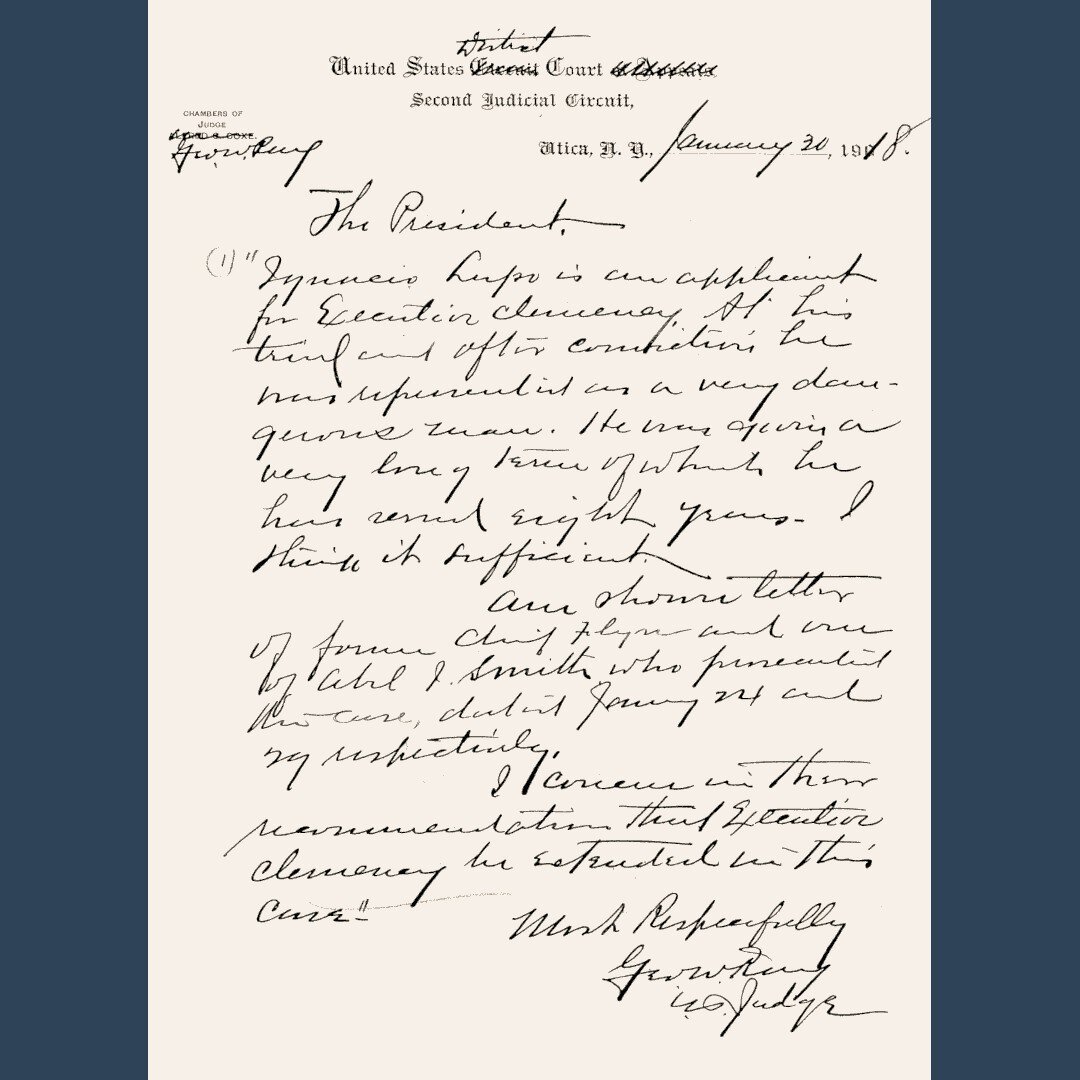 District
United States Circuit Court of Appeals
Second Judicial Circuit,
CHAMBERS OF
JUDGE
ALFRED C. COXE.
Geo. W. Ray
Utica, N. Y., January 30, 1918.
The President.
(1) "Ignacio Lupo is an applicant
for Executive clemency. At his
trial and after conviction he
was represented as a very dan-
gerous man. He was given a
very long term of which he
has served eight years. I
think it sufficient.
Am shown letter
of former Chief Flynn and one
of Abel I. Smith, who prosecuted
the case, dated January 24 and
29 respectively.
I concur in their
recommendation that Executive
clemency be extended in this
case"
Most Respectfully
Geo. W. Ray
U.S. Judge